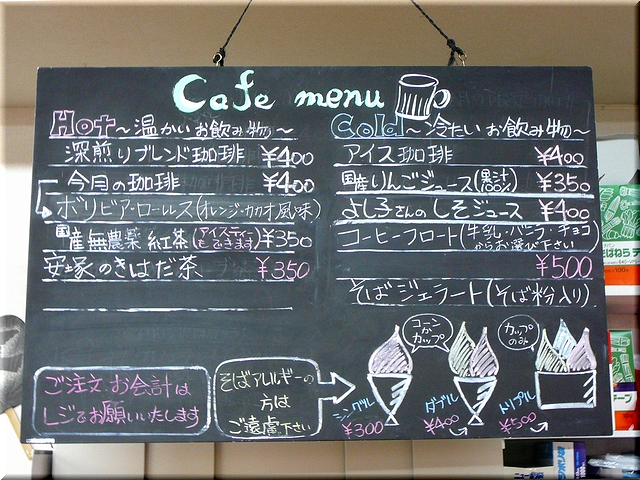 Cafe menu
Hot～温かいお飲み物～
深煎りブレンド珈琲 ¥400
今月の珈琲 ¥400
ボリビア・ローレス(オレンジ・カカオ風味)
国産無農薬 紅茶(アイスティーもできます) ¥350
安塚のきはだ茶 ¥350
Cold～冷たいお飲み物～
アイス珈琲 ¥400
国産りんごジュース(果汁100%) ¥350
よし子さんのしそジュース ¥400
コーヒーフロート(牛乳・バニラ・チョコからお選び下さい)
¥500
そばジェラート(そば粉入り)
コーンかカップ
カップのみ
シングル ¥300
ダブル ¥400
トリプル ¥500
ご注文 お会計は
レジでお願いいたします
そばアレルギーの
方は
ご遠慮下さい